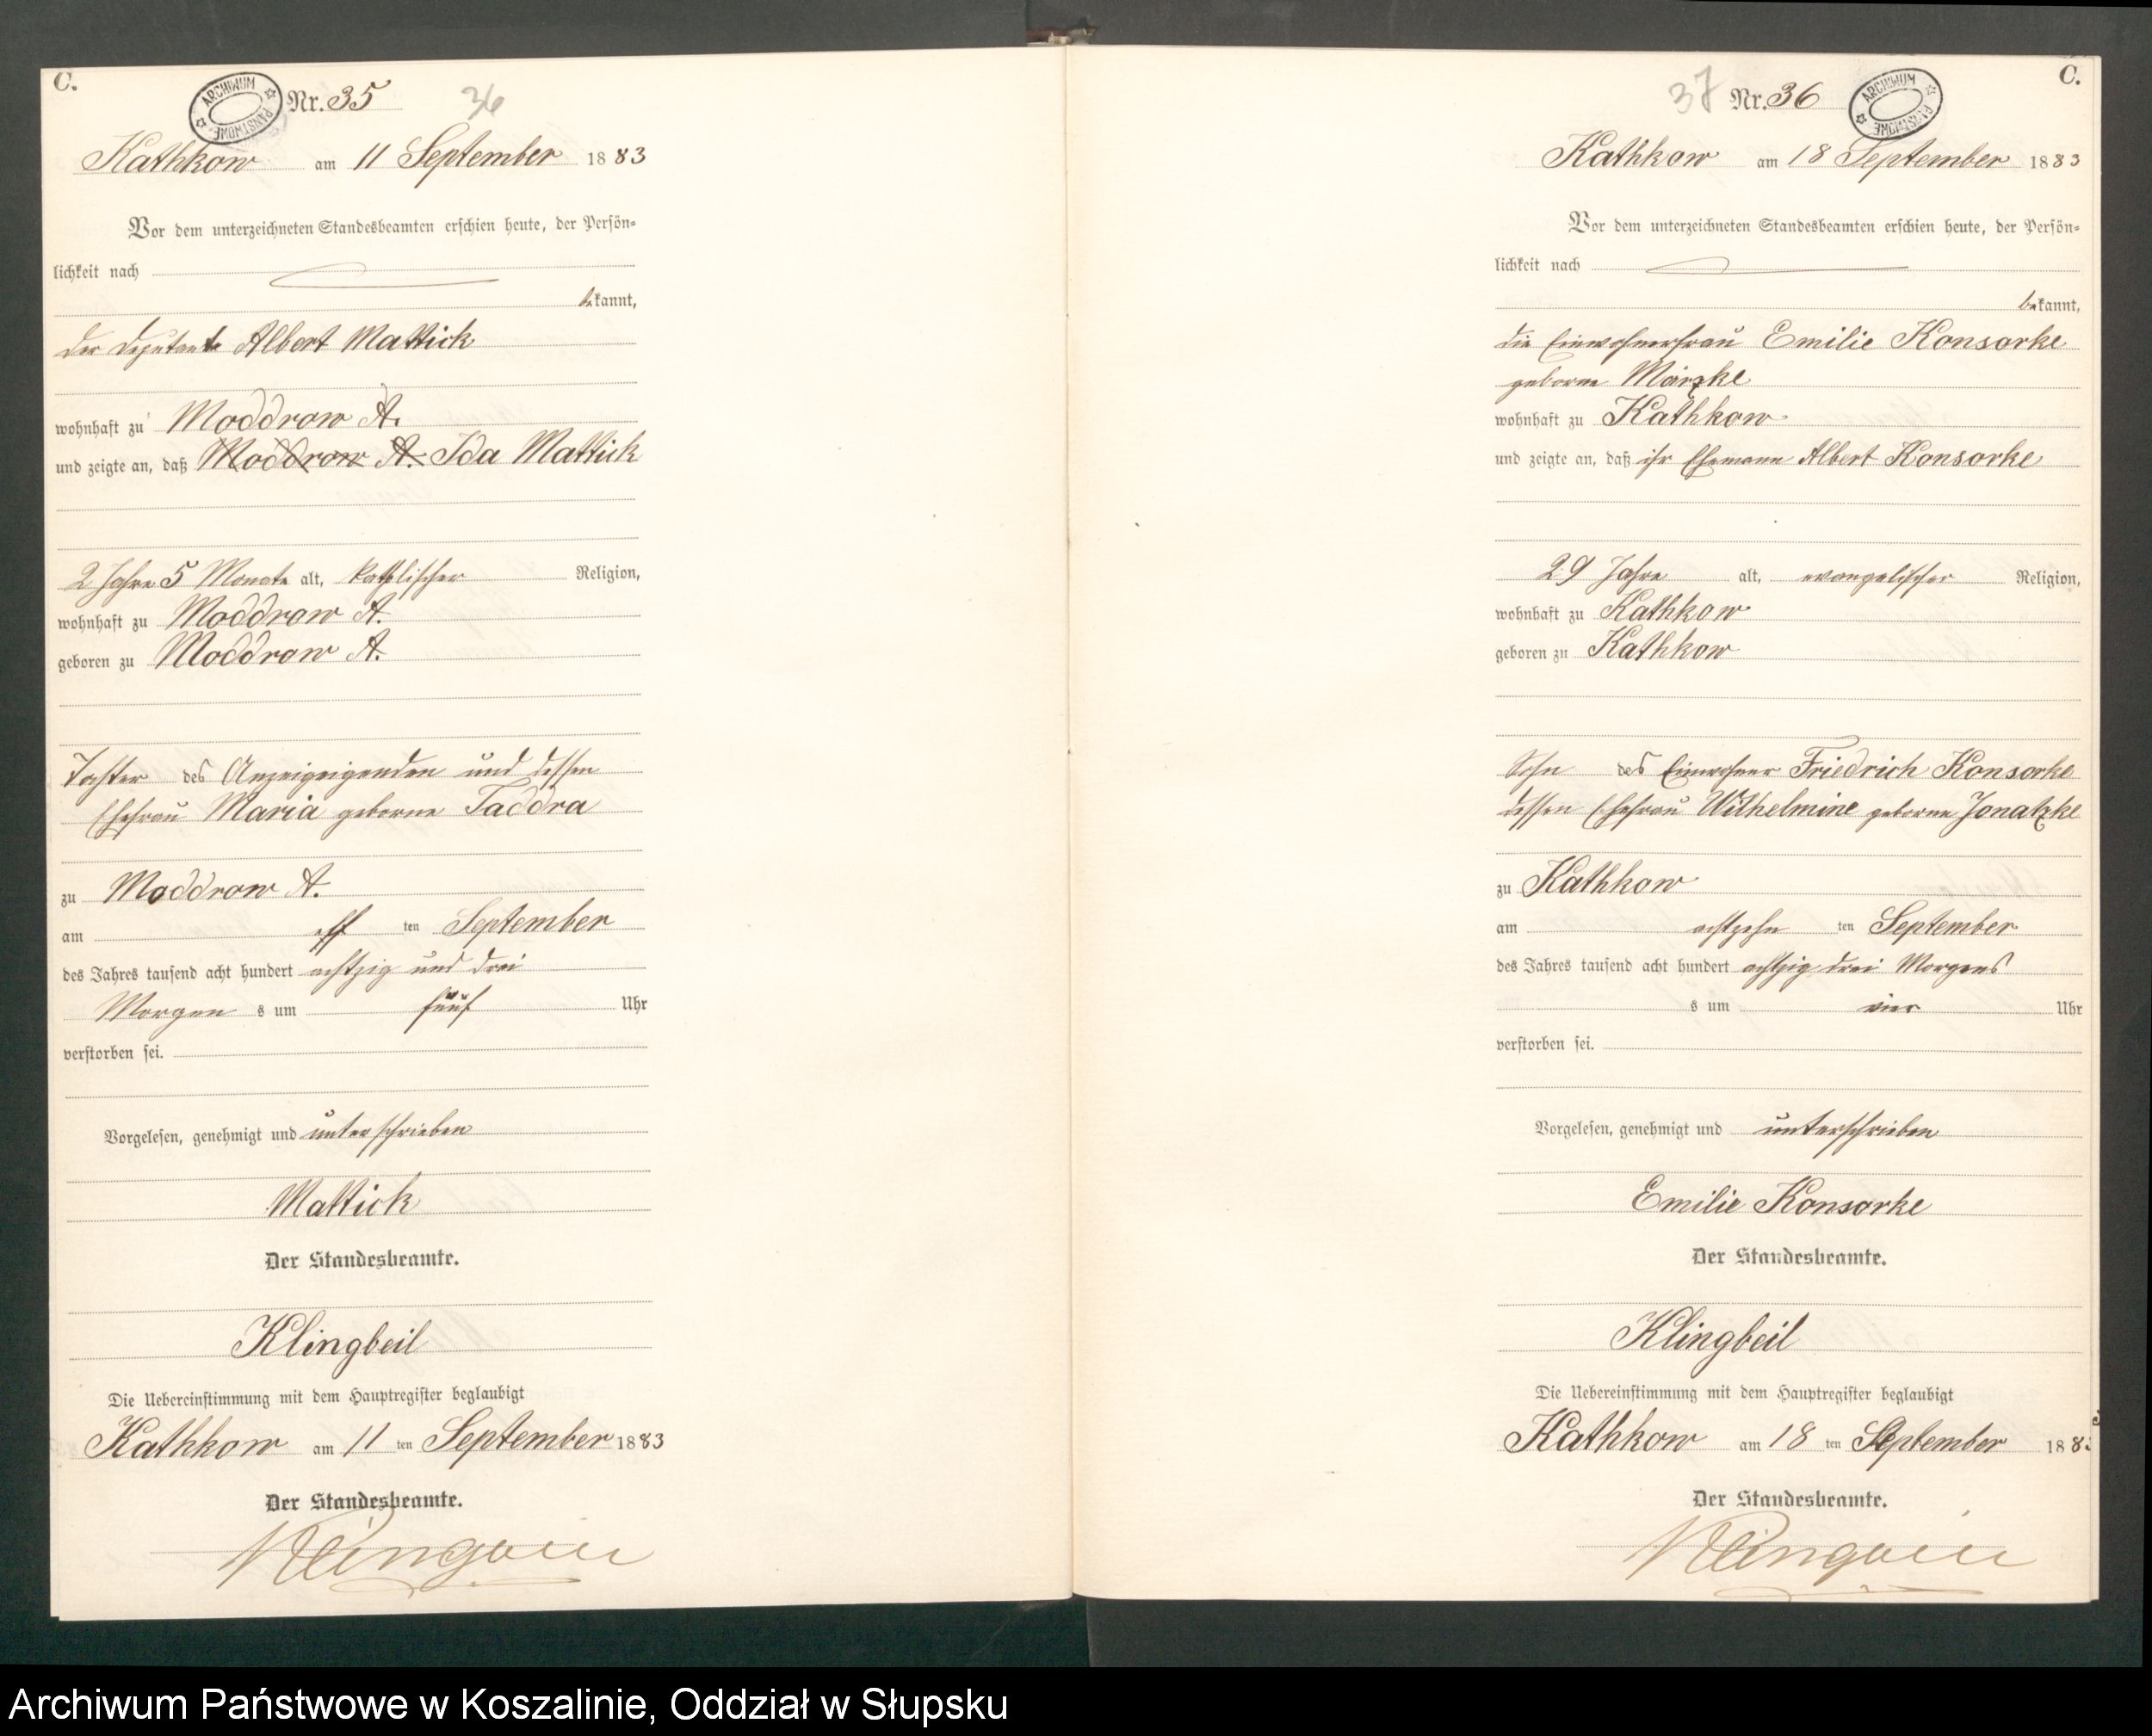 C.
ARCHIWUM PAŃSTWOWE
Nr. 35
36
Kathkow am 11 September 1883
Vor dem unterzeichneten Standesbeamten erschien heute, der Persön-
lichkeit nach
bekannt,
der Deputant Albert Mattick
wohnhaft zu Moddrow A.
und zeigte an, daß Moddrow A. Ida Mattick
2 Jahre 5 Monate alt, katholischer Religion,
wohnhaft zu Moddrow A.
geboren zu Moddrow A.
Tochter des Anzeigeigenden und dessen
Ehefrau Maria geborne Taddra
zu Moddrow A.
am elf ten September
des Jahres tausend acht hundert achtzig und drei
Morgen s um fünf Uhr
verstorben sei.
Vorgelesen, genehmigt und unterschrieben
Mattick
Der Standesbeamte.
Klingbeil
Die Uebereinstimmung mit dem Hauptregister beglaubigt
Kathkow am 11 ten September 1883
Der Standesbeamte.
Klingbeil
C.
37
Nr. 36
ARCHIWUM PAŃSTWOWE
Kathkow am 18 September 1883
Vor dem unterzeichneten Standesbeamten erschien heute, der Persön-
lichkeit nach
bekannt,
die Einwohnerfrau Emilie Konsorke
geborne Märzke
wohnhaft zu Kathkow
und zeigte an, daß ihr Ehemann Albert Konsorke
29 Jahre alt, evangelischer Religion,
wohnhaft zu Kathkow
geboren zu Kathkow
Sohn des Einwohner Friedrich Konsorke
dessen Ehefrau Wilhelmine geborne Jonatzke
zu Kathkow
am achtzehn ten September
des Jahres tausend acht hundert achtzig drei Morgens
s um vier Uhr
verstorben sei.
Vorgelesen, genehmigt und unterschrieben
Emilie Konsorke
Der Standesbeamte.
Klingbeil
Die Uebereinstimmung mit dem Hauptregister beglaubigt
Kathkow am 18 ten September 1883
Der Standesbeamte.
Klingbeil
Archiwum Państwowe w Koszalinie, Oddział w Słupsku